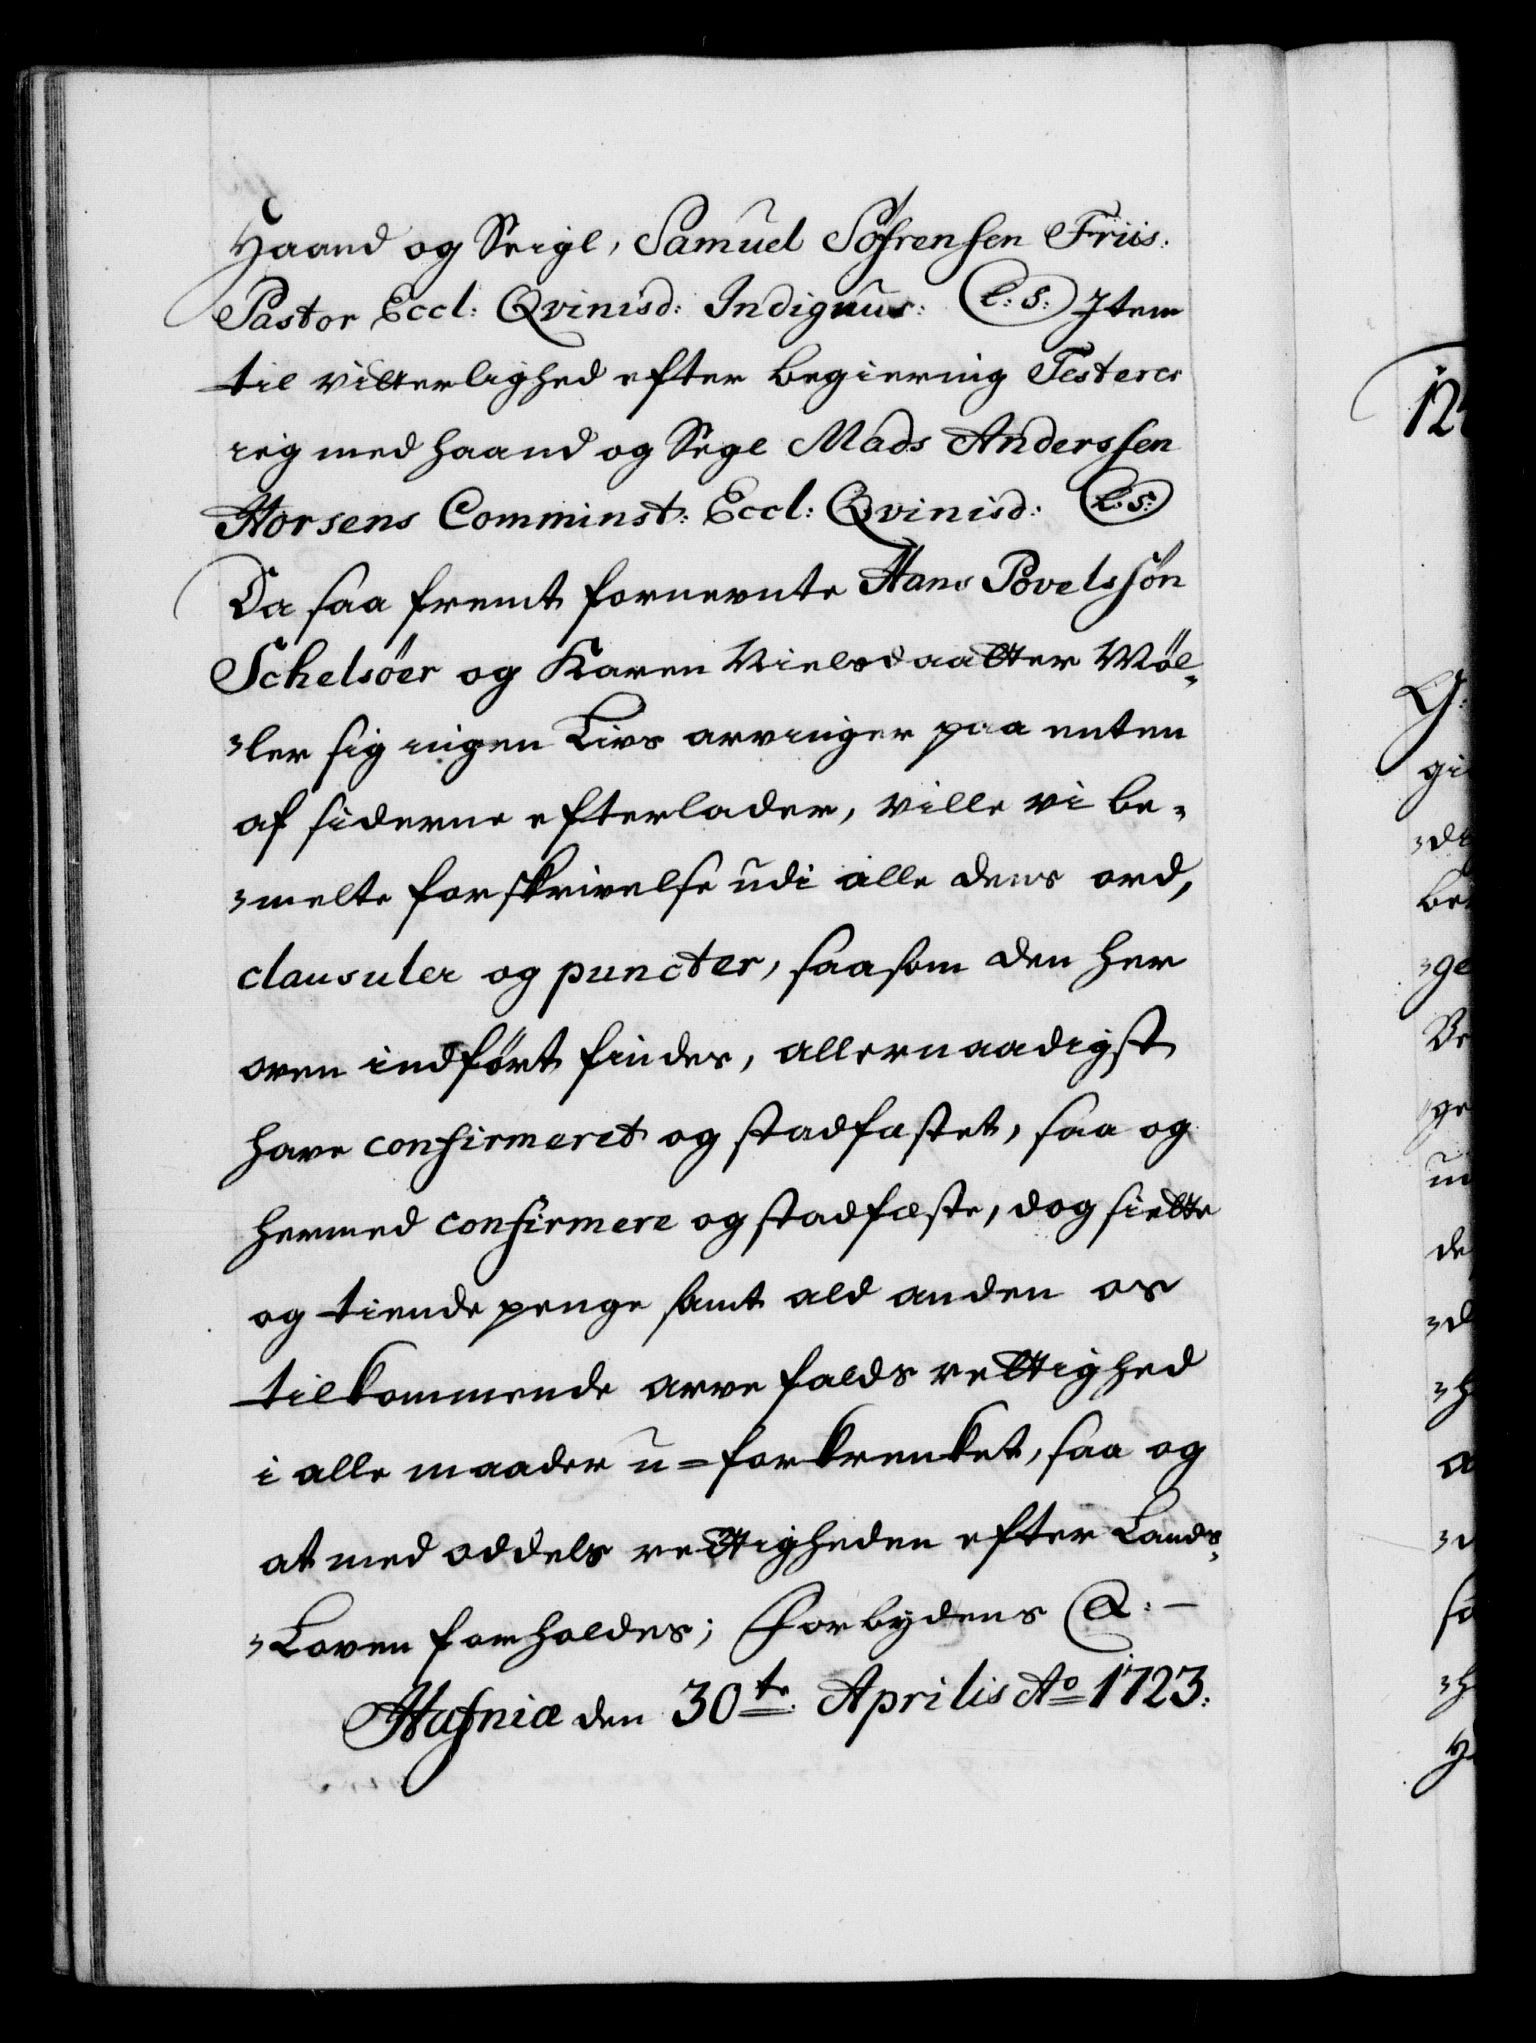 Haand og Seigl, Samuel Søfrensen Friis.
Pastor Eccl: Qvinisd: Indignus: (L: S:) Item
til vitterlighed efter begiering Testerer
ieg med haand og Segl Mads Anderssen
Horsens Comminst: Eccl: Qvinisd: (L: S:)
Da saa fremt fornevnte Hans Povelssøn
Schelsöer og Karen Nielsdaatter Möl-
-ler sig ingen Livs arvinger paa enten
af siderne efterlader, ville vi be-
-melte forskrivelse udi alle dens ord,
clausuler og puncter, saasom den her
oven indført findes, allernaadigst
have confirmeret og stadfæstet, saa og
hermed confirmere og stadfæste, dog siette
og tiende penge samt ald anden os
tilkommende arve falds rettighed
i alle maader u=forkrenket, saa og
at med oddels rettigheden efter Lands-
-Loven forholdes; Forbydens &:-
Hafniæ den 30te Aprilis Ao 1723.